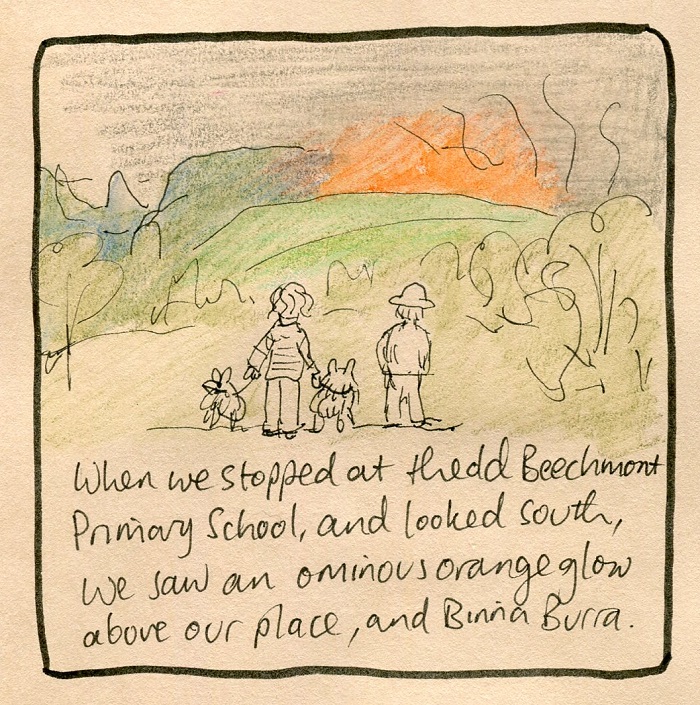 When we stopped at thedd Beechmont
Primary School, and looked south,
we saw an ominous orange glow
above our place, and Binna Burra.